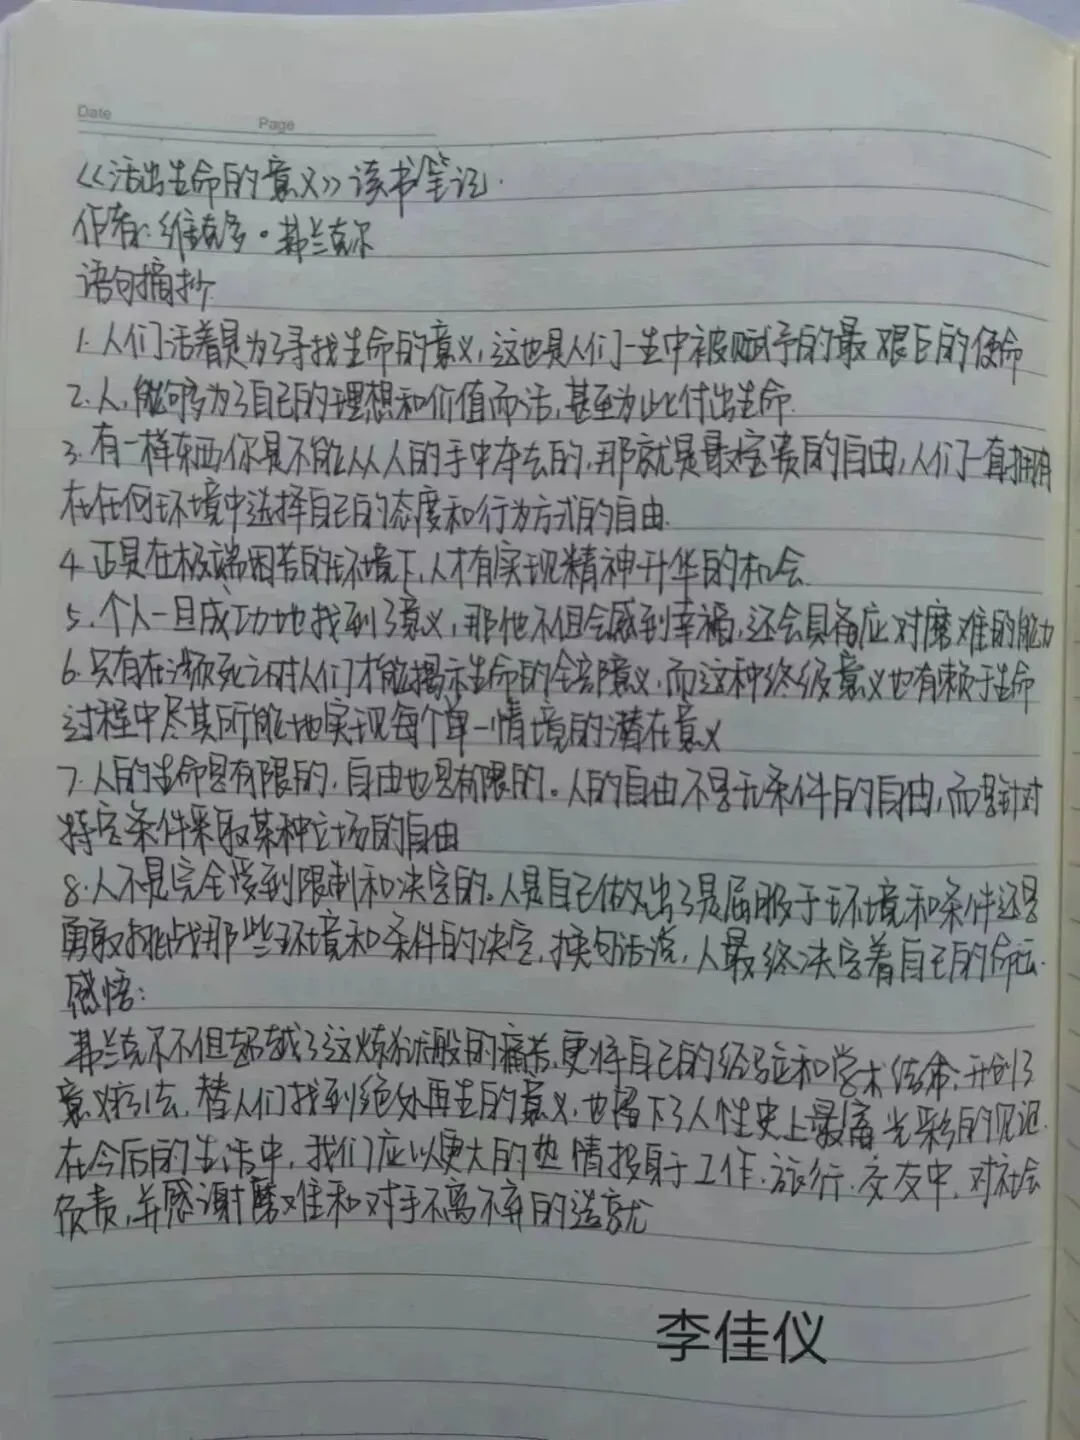 Date
Page
《活出生命的意义》读书笔记.
作者:维克多·弗兰克尔
语句摘抄
1.人们活着是为了寻找生命的意义,这也是人们一生中被赋予的最艰巨的使命
2.人,能够为了自己的理想和价值而活,甚至为此付出生命.
3.有一样东西你是不能从人的手中夺去的,那就是最宝贵的自由,人们一直拥有
在任何环境中选择自己的态度和行为方式的自由.
4.正是在极端困苦的环境下,人才有实现精神升华的机会.
5.个人一旦成功地找到了意义,那他不但会感到幸福,还会具备应对磨难的能力
6.只有在濒死之时人们才能揭示生命的全部意义,而这种终级意义也有赖于生命
过程中尽其所能地实现每个单一情境的潜在意义
7.人的生命是有限的,自由也是有限的。人的自由不是无条件的自由,而是针对
特定条件采取某种立场的自由
8.人不是完全受到限制和决定的。人是自己做出了是屈服于环境和条件还是
勇敢挑战那些环境和条件的决定,换句话说,人最终决定着自己的命运.
感悟:
弗兰克尔不但超越了这炼狱般的痛苦,更将自己的经验和学术结合,开创了
意义疗法,替人们找到绝处再生的意义,也留下了人性史上最富光彩的见证.
在今后的生活中,我们应以更大的热情投身于工作.旅行.交友中,对社会
负责,并感谢磨难和对手不离不弃的造就
李佳仪